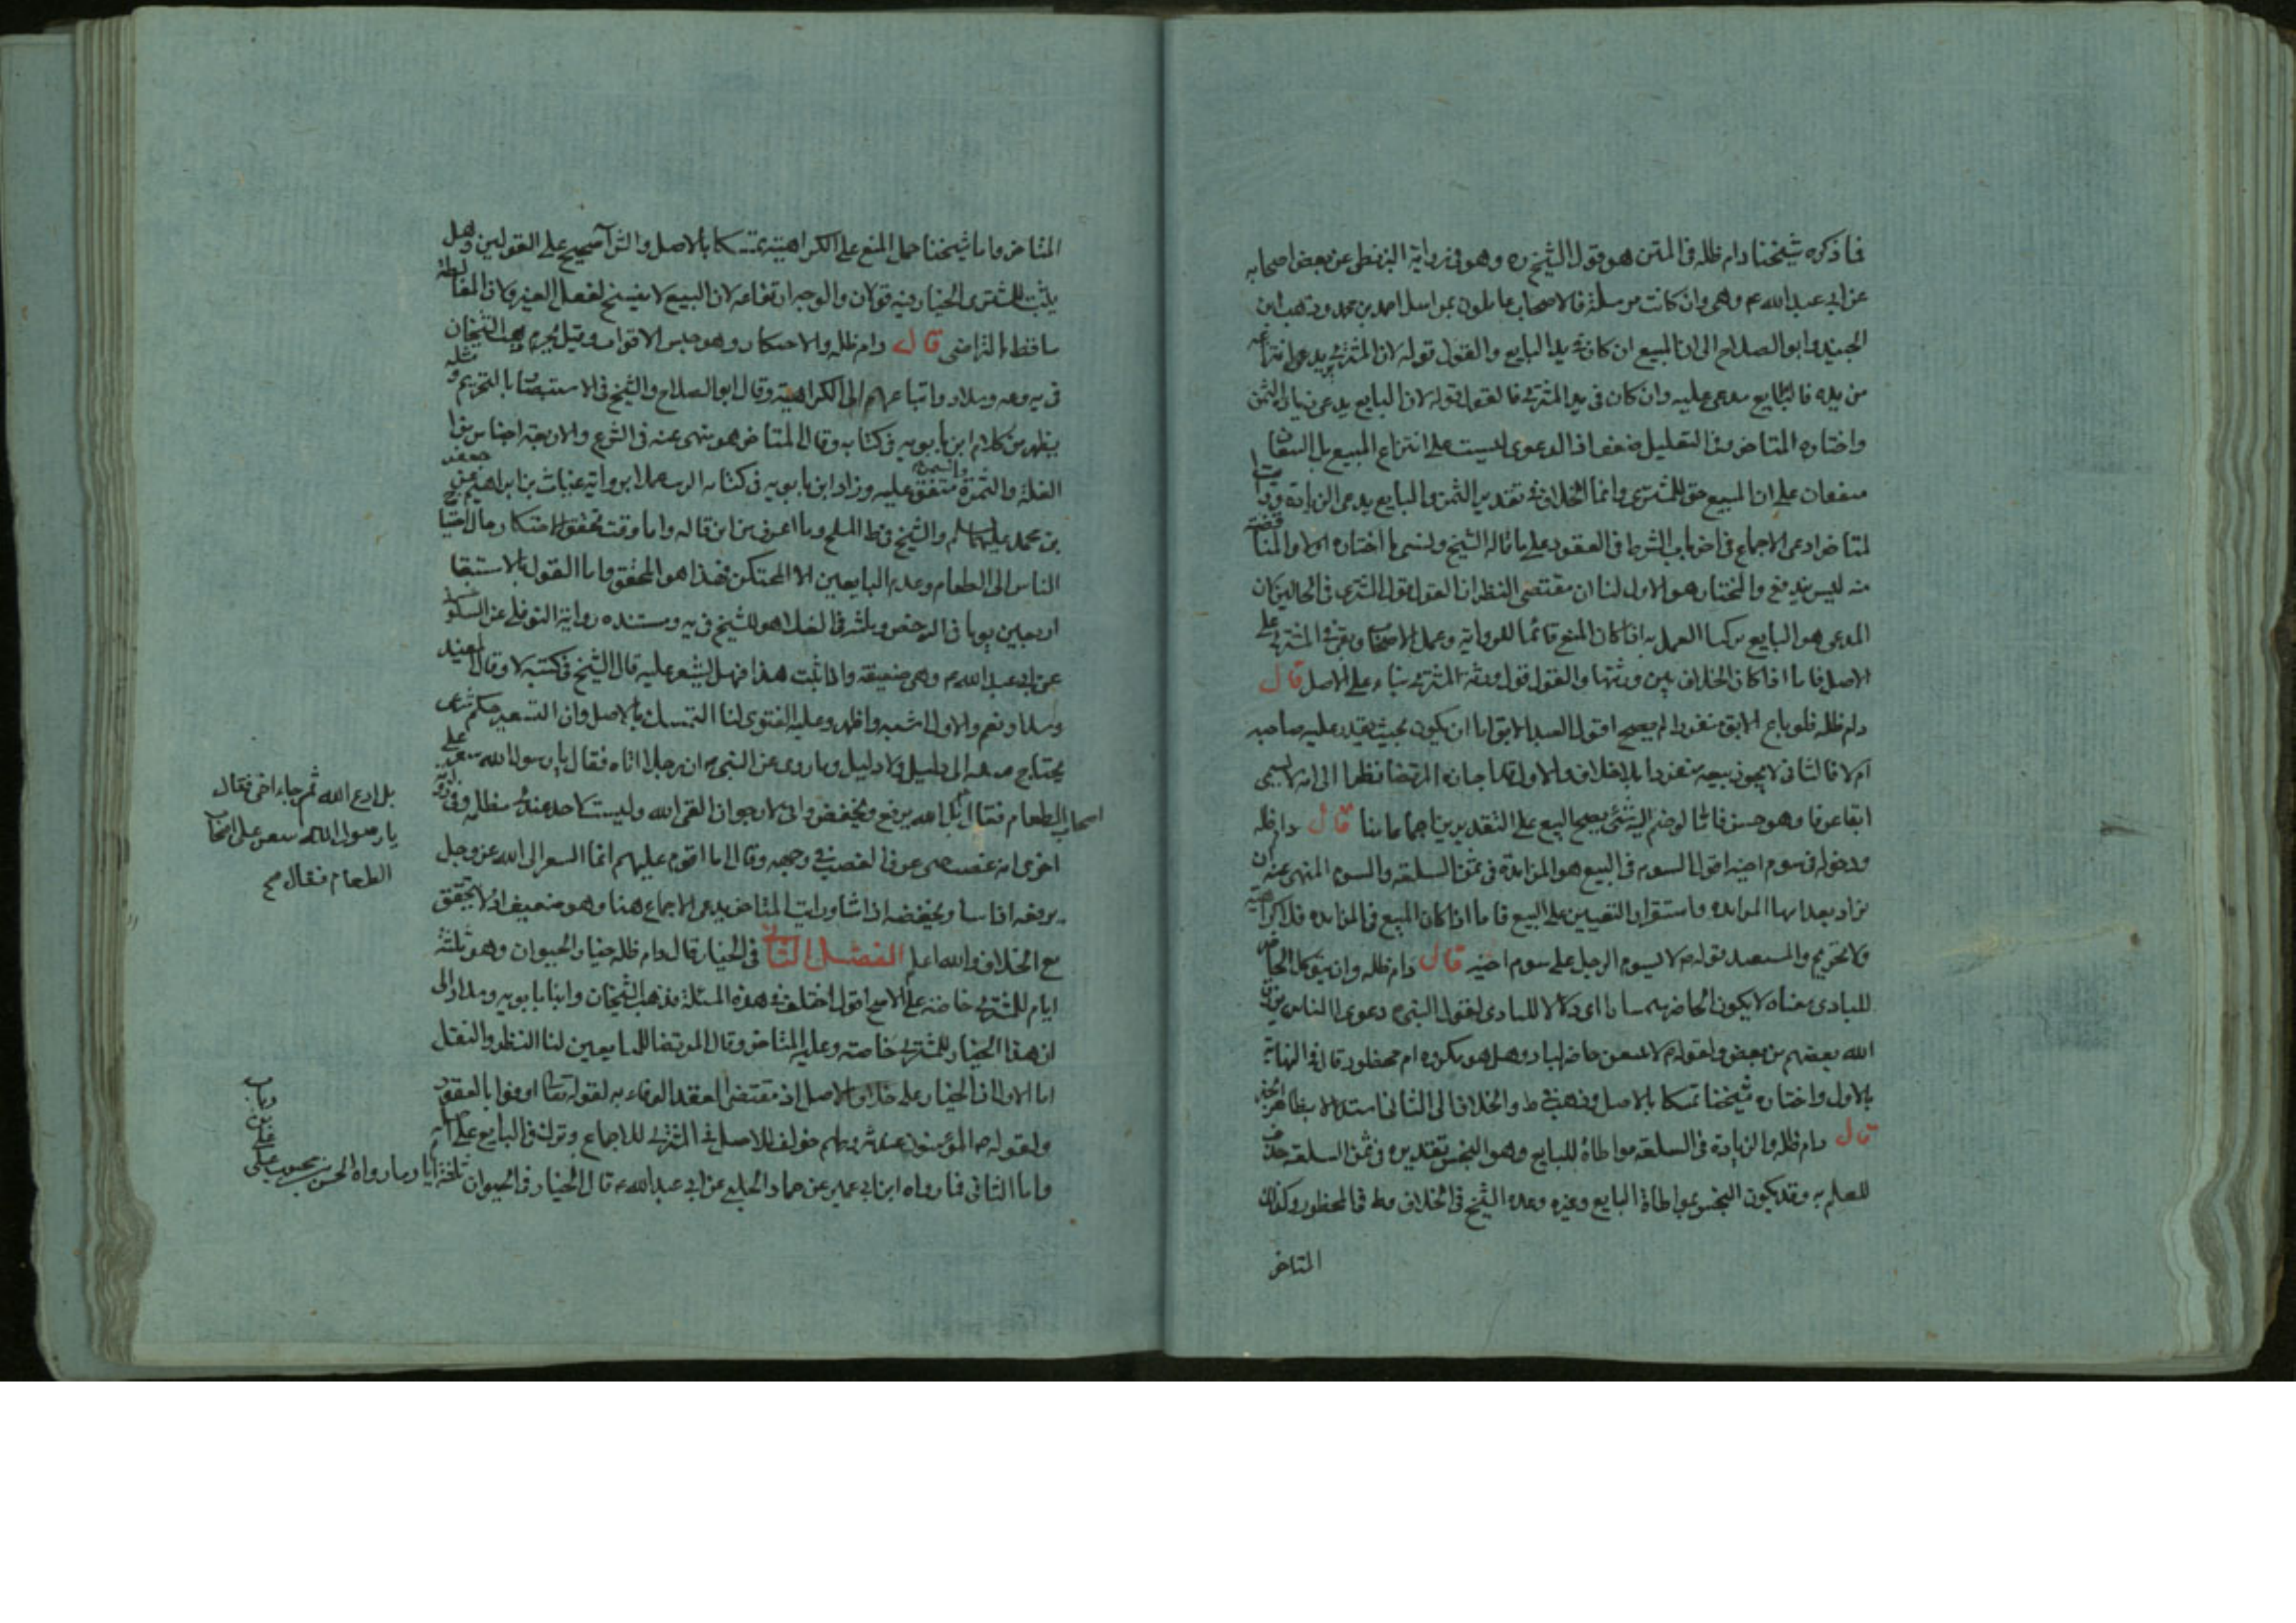 فما ذكره شيخنا دام ظله فى المتن هو قول الشيخ ره وهو فى رواية البزنطى عن بعض اصحابه
عن ابى عبد الله ع وهى وان كانت مرسلة فالاصحاب عاملون بمراسل احمد بن محمد وذهب ابن
الجنيد وابو الصلاح الى ان المبيع ان كان فى يد البايع والقول قوله لان المشترى يدعى انتزاعه
من يده فالبايع مدعى عليه وان كان فى يد المشترى فالقول قوله لان البايع يدعى زيادة الثمن
واختاره المتاخر وفى التعليل ضعف اذ الدعوى ليست على انتزاع المبيع بل
متفقان على ان المبيع حق للمشترى وانما الخلاف فى تقدير الثمن والبايع يدعى الزيادة
لمتاخر ادعى الاجماع فى اخر باب الشرط فى العقود على ما قاله الشيخ ونسى ما اختاره اولا والمناقضة
منه ليس ببديع والمختار هو الاول لنا ان مقتضى النظر ان القول قول المشترى فى الحالين لان
المدعى هو البايع تركنا العمل به اذا كان المبيع قائما للرواية وعمل الاصحاب وبقى المشترى على
الاصل فاما اذا كان الخلاف بين ورثتهما والقول قول ورثة المشترى بناء على الاصل قال
دام ظله فلو باع الابق منفردا لم يصح اقول العبد الابق اما ان يكون بحيث يقدر عليه صاحبه
ام لا فالثانى لا يجوز بيعه منفردا بلا خلاف والاول جاز المرتضى نظرا الى انه لا يسمى
ابقا عرفا وهو حسن فاما لو ضم اليه شئ يصح البيع على التقديرين اجماعا منا قال دام ظله
ودخوله فى سوم اخيه اقول السوم فى البيع هو المزايدة فى ثمن السلعة والسوم المنهى عنه ان
يزاد بعد انتهاء المزايده واستقرار التعيين على البيع فاما اذا كان المبيع فى المزايده فلا كراهية
ولا تحريم والمستند قوله ص لا يسوم الرجل على سوم اخيه قال دام ظله وان يتوكل الحاضر
للبادى معناه لا يكون الحاضر سمسارا اى دلالا للبادى لقول النبى ص دعوا الناس يرزق
الله بعضهم من بعض ولقوله ص لا يبيعن حاضر لباد وهل هو مكروه ام محظور قال فى النهاية
بالاول واختاره شيخنا تمسكا بالاصل وذهب فى ط والخلاف الى الثانى استدلالا بظاهر الخبر
قال دام ظله والزيادة فى السلعة مواطاة للبايع وهو النجش تقديره فى ثمن السلعة حذف
للعلم به وقد يكون النجش بمواطاة البايع وغيره وعده الشيخ فى الخلاف وط فى المحظور وكذلك
المتاخر
المتاخر واما شيخنا حمل المنع على الكراهية تمسكا بالاصل والشراء صحيح على القولين وهل
يثبت للمشترى الخيار فيه قولان والوجه ارتفاعه لان البيع لا يفسخ لفعل الغير ولان المغابطة
ساقط بالتراضى قال دام ظله والاحتكار وهو حبس الاقوات وقيل يحرم ذهب الشيخان
فى يه وعه وسلار واتباعهم الى الكراهية وقال ابو الصلاح والشيخ فى الاستبصار بالتحريم ومثله
يظهر من كلام ابن بابويه فى كتابه وقال المتاخر هو منهى عنه فى الشرع والاربعة اجناس من
الغلة والتمرة والسمن متفق عليه وزاد ابن بابويه فى كتابه الزيت عملا برواية غياث بن ابراهيم عن جعفر
بن محمد عليهما السلم والشيخ فى ط الملح وما اعرف من اين قاله واما وقت تحقق الاحتكار حال احتياج
الناس الى الطعام وعدم البايعين الا المحتكر هذا هو المحقق واما القول بالاستبقاء
اربعين يوما فى الرخص وثلثه فى الغلاء هو للشيخ فى يه ومستنده رواية النوفلى عن السكونى
عن ابى عبد الله ع وهى ضعيفة واذا ثبت هذا فهل يسعر عليه قال الشيخ فى كتبه لا وقال المفيد
وسلار نعم والاول اشبه واظهر وعليه الفتوى لنا التمسك بالاصل وان التسعير حكم شرعى
يحتاج معه الى دليل ولا دليل وما روى عن النبى ص ان رجلا اتاه فقال يا رسول الله سعر على
اصحاب الطعام فقال بل الله يرفع ويخفض وانى لارجو ان القى الله وليست لاحد عندى مظلمة وفى رواية
اخرى انه غضب حتى عرف الغضب فى وجهه وقال ما اقوم عليهم انما السعر الى الله عز وجل
يرفعه اذا شاء ويخفضه اذا شاء ورايت المتاخر يدعى الاجماع هنا وهو ضعيف اذ لا يتحقق
مع الخلاف والله اعلم الفصل الثانى فى الخيار قال دام ظله خيار الحيوان وهو ثلثة
ايام للمشترى خاصة على الاصح اقول اختلف فى هذه المسئلة فذهب الشيخان وابنا بابويه وسلار الى
ان هذا الخيار للمشترى خاصة وعليه المتاخر وقال المرتضى للبايعين لنا النظر والنقل
اما الاول ان الخيار على خلاف الاصل اذ مقتضى العقد الوفاء به لقوله تعالى اوفوا بالعقود
ولقوله ص المؤمنون عند شروطهم خولف الاصل فى المشترى للاجماع وترك فى البايع على حاله
واما الثانى فما رواه ابن ابى عمير عن حماد الحلبى عن ابى عبد الله ع قال الخيار فى الحيوان ثلثة ايام وما رواه الحسن بن محبوب عن على
بن رياب
بل ادع الله ثم جاء اخر فقال
يا رسول الله سعر على اصحاب
الطعام فقال صح